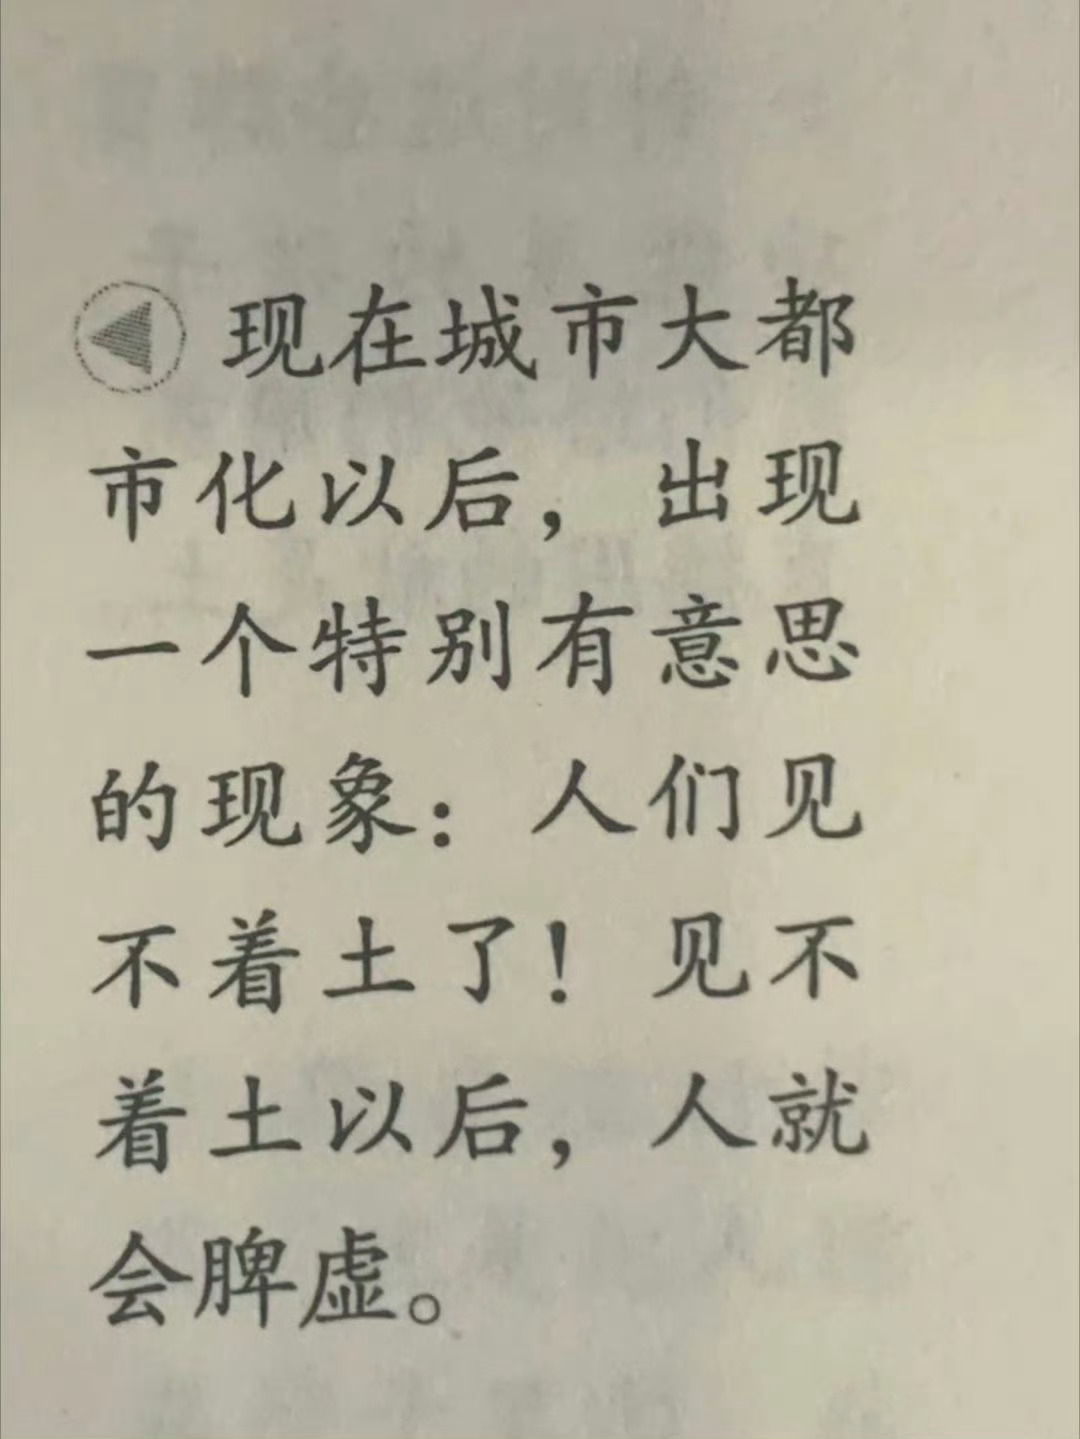 现在城市大都
市化以后，出现
一个特别有意思
的现象：人们见
不着土了！见不
着土以后，人就
会脾虚。